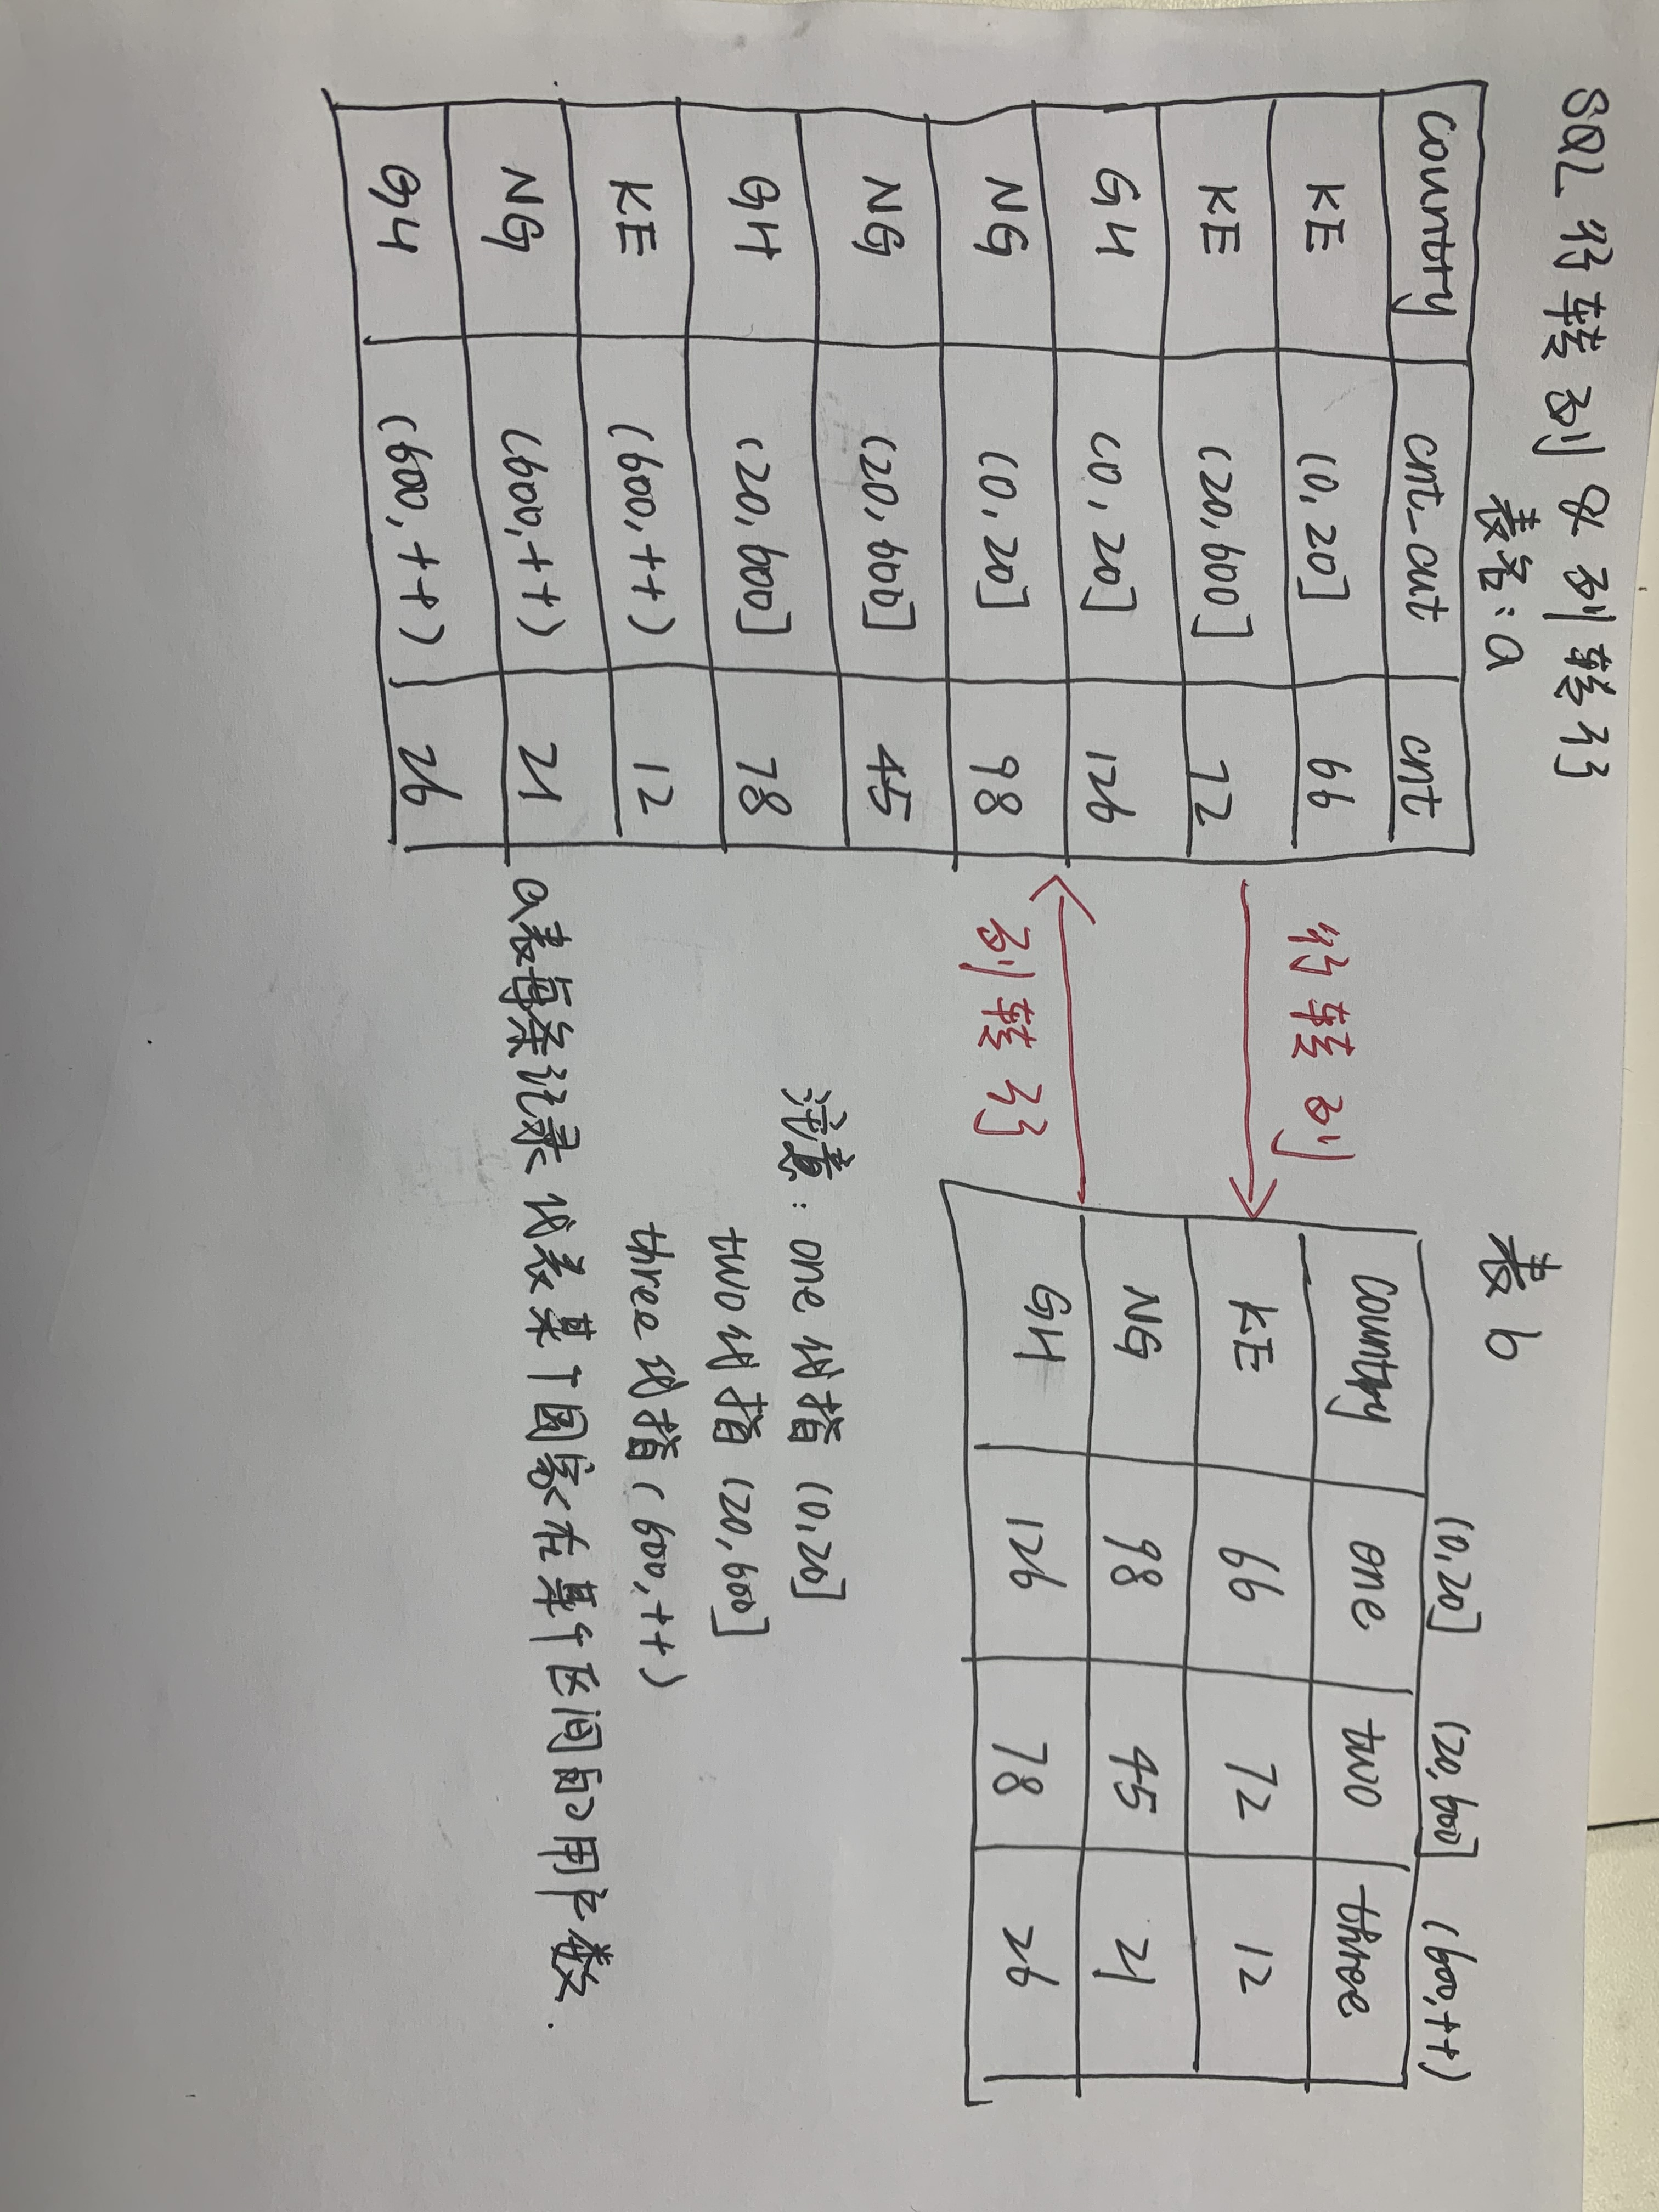 SQL 行转列 & 列转行
表名：a
country cnt_cut cnt
KE (0,20] 66
KE (20,600] 72
GH (0,20] 126
NG (0,20] 98
NG (20,600] 45
GH (20,600] 78
KE (600,++) 12
NG (600,++) 21
GH (600,++) 26
行转列
列转行
表b
(0,20] (20,600] (600,++)
Country one two three
KE 66 72 12
NG 98 45 21
GH 126 78 26
注意：one 代指 (0,20]
two 代指 (20,600]
three 代指 (600,++)
a表每条记录代表某个国家在某个区间的用户数.